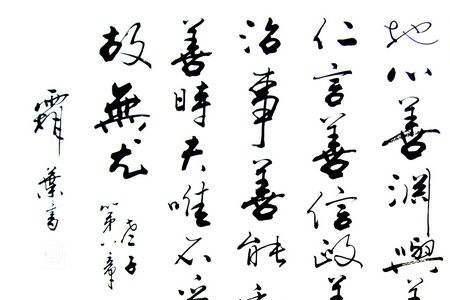 地心善淵與善
仁言善信政善
治事善能
善時夫唯不
故無尤
老子
第八章
葉